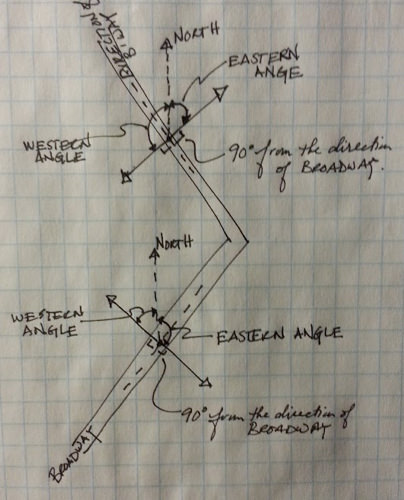 DIRECTION of
B'WAY
NORTH
EASTERN
ANGE
WESTERN
ANGLE
90° from the direction
of BROADWAY.
NORTH
WESTERN
ANGLE
EASTERN ANGLE
90° from the direction of
BROADWAY
BROADWAY